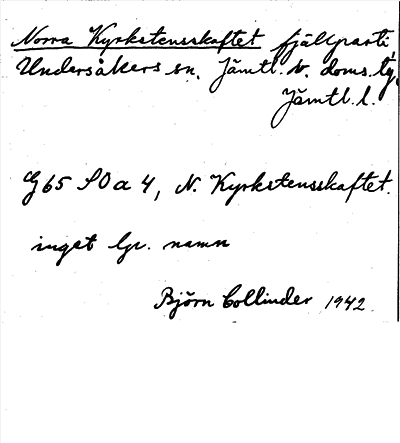 Norra Kyrkstensskaftet fjällparti,
Undersåkers sn. Jämtl. v. doms. tg,
Jämtl. l.
G65 SO a 4, N. Kyrkstensskaftet.
inget lp. namn
Björn Collinder 1942